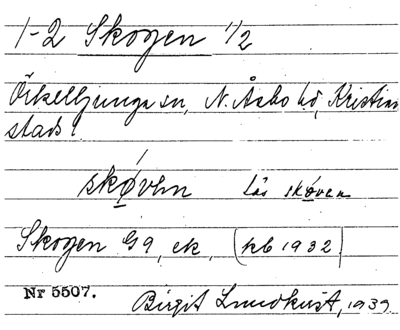 1-2 Skogen 1/2
Örkelljunga sn, N. Åsbo hd, Kristian
stads l.
skøvən läs skøven
Skogen G9, ek, (kb 1932)
Nr 5507. Birgit Lundkvist, 1939.